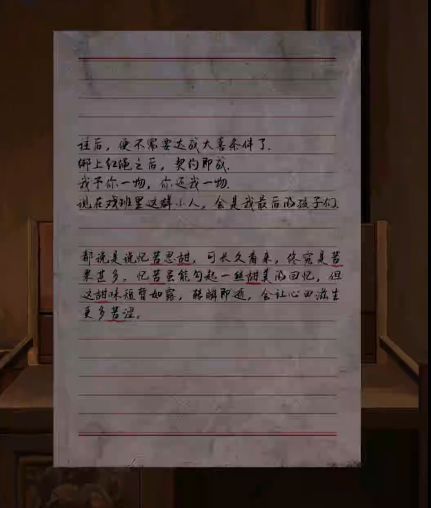 往后，便不需要达成大喜条件了.
绑上红绳之后，契约即成.
我予你一物，你还我一物.
现在戏班里这群小人，会是我最后的孩子们.
都说是说忆苦思甜，可长久看来，终究是苦
果甚多。忆苦虽能勾起一丝甜美的回忆，但
这甜味短暂如露，转瞬即逝，会让心田滋生
更多苦涩。